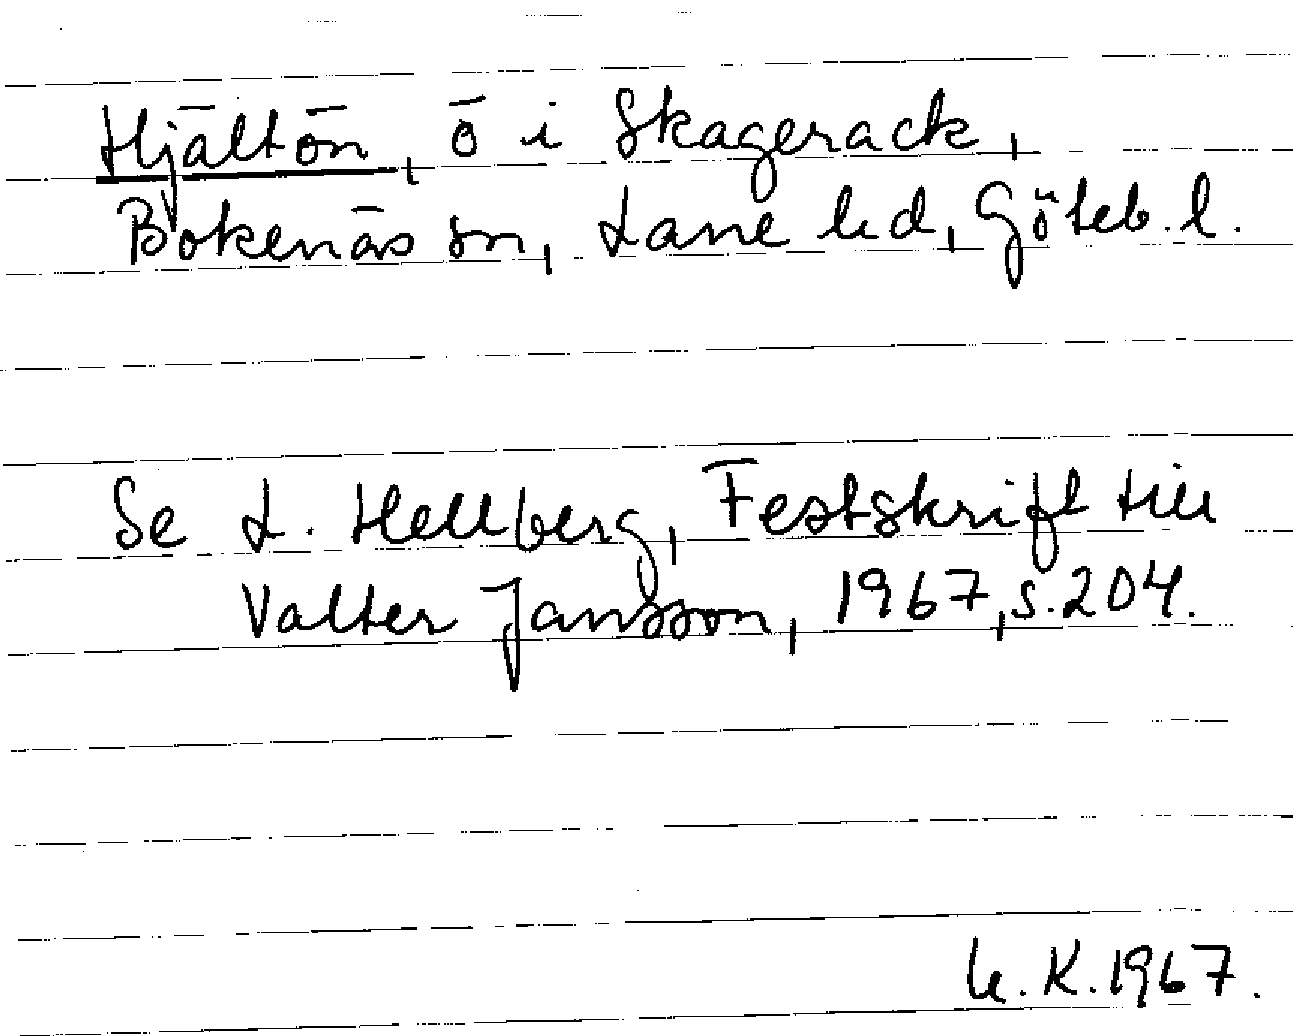 Hjältön, ö i Skagerack,
Bokenäs sn, Lane hd, Göteb. l.
Se L. Hellberg, Festskrift till
Valter Jansson, 1967, s. 204.
K. 1967.